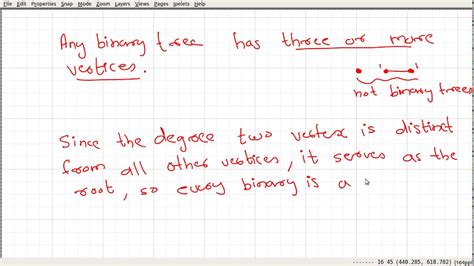 Edit Zoom Pages Layers Tools Options Help
Any binary tree has three or more
vertices.
1 1
not binary trees
Since the degree two vertex is distinct
from all other vertices, it serves as the
root, so every binary is a
16 45 (440.285, 618.702)